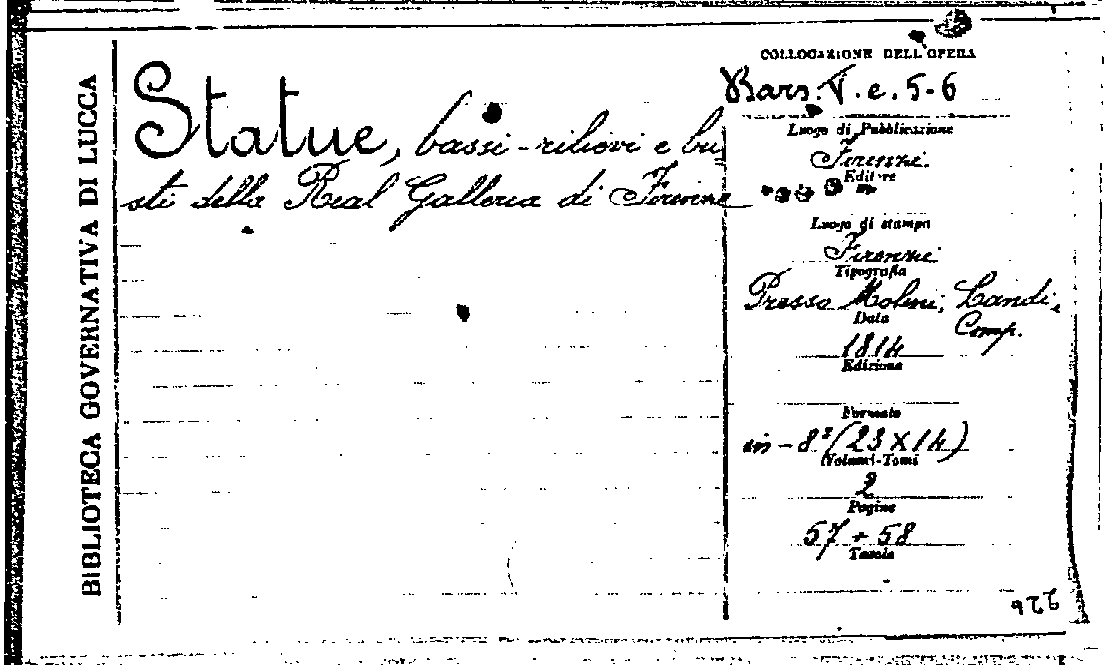 BIBLIOTECA GOVERNATIVA DI LUCCA
Statue, bassi-rilievi e bu
sti della Real Galleria di Firenze
COLLOCAZIONE DELL'OPERA
Bars. V. e. 5-6
Luogo di Pubblicazione
Firenze
Editore
Luogo di stampa
Firenze
Tipografia
Presso Molini, Landi,
Comp.
Data
1814
Edizione
Formato
in-8° (23 X 14)
Volumi-Tomi
2
Pagine
57 + 58
Tavole